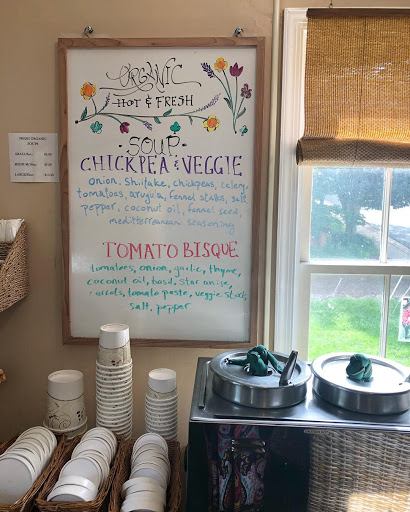 ORGANIC
HOT & FRESH
·SOUP·
CHICKPEA & VEGGIE
onion, shiitake, chickpeas, celery,
tomatoes, arugula, fennel stalks, salt
pepper, coconut oil, fennel seed,
mediterranean seasoning
TOMATO BISQUE
tomatoes, onion, garlic, thyme,
coconut oil, basil, star anise,
carrots, tomato paste, veggie stock,
salt, pepper
FRESH ORGANIC
SOUPS